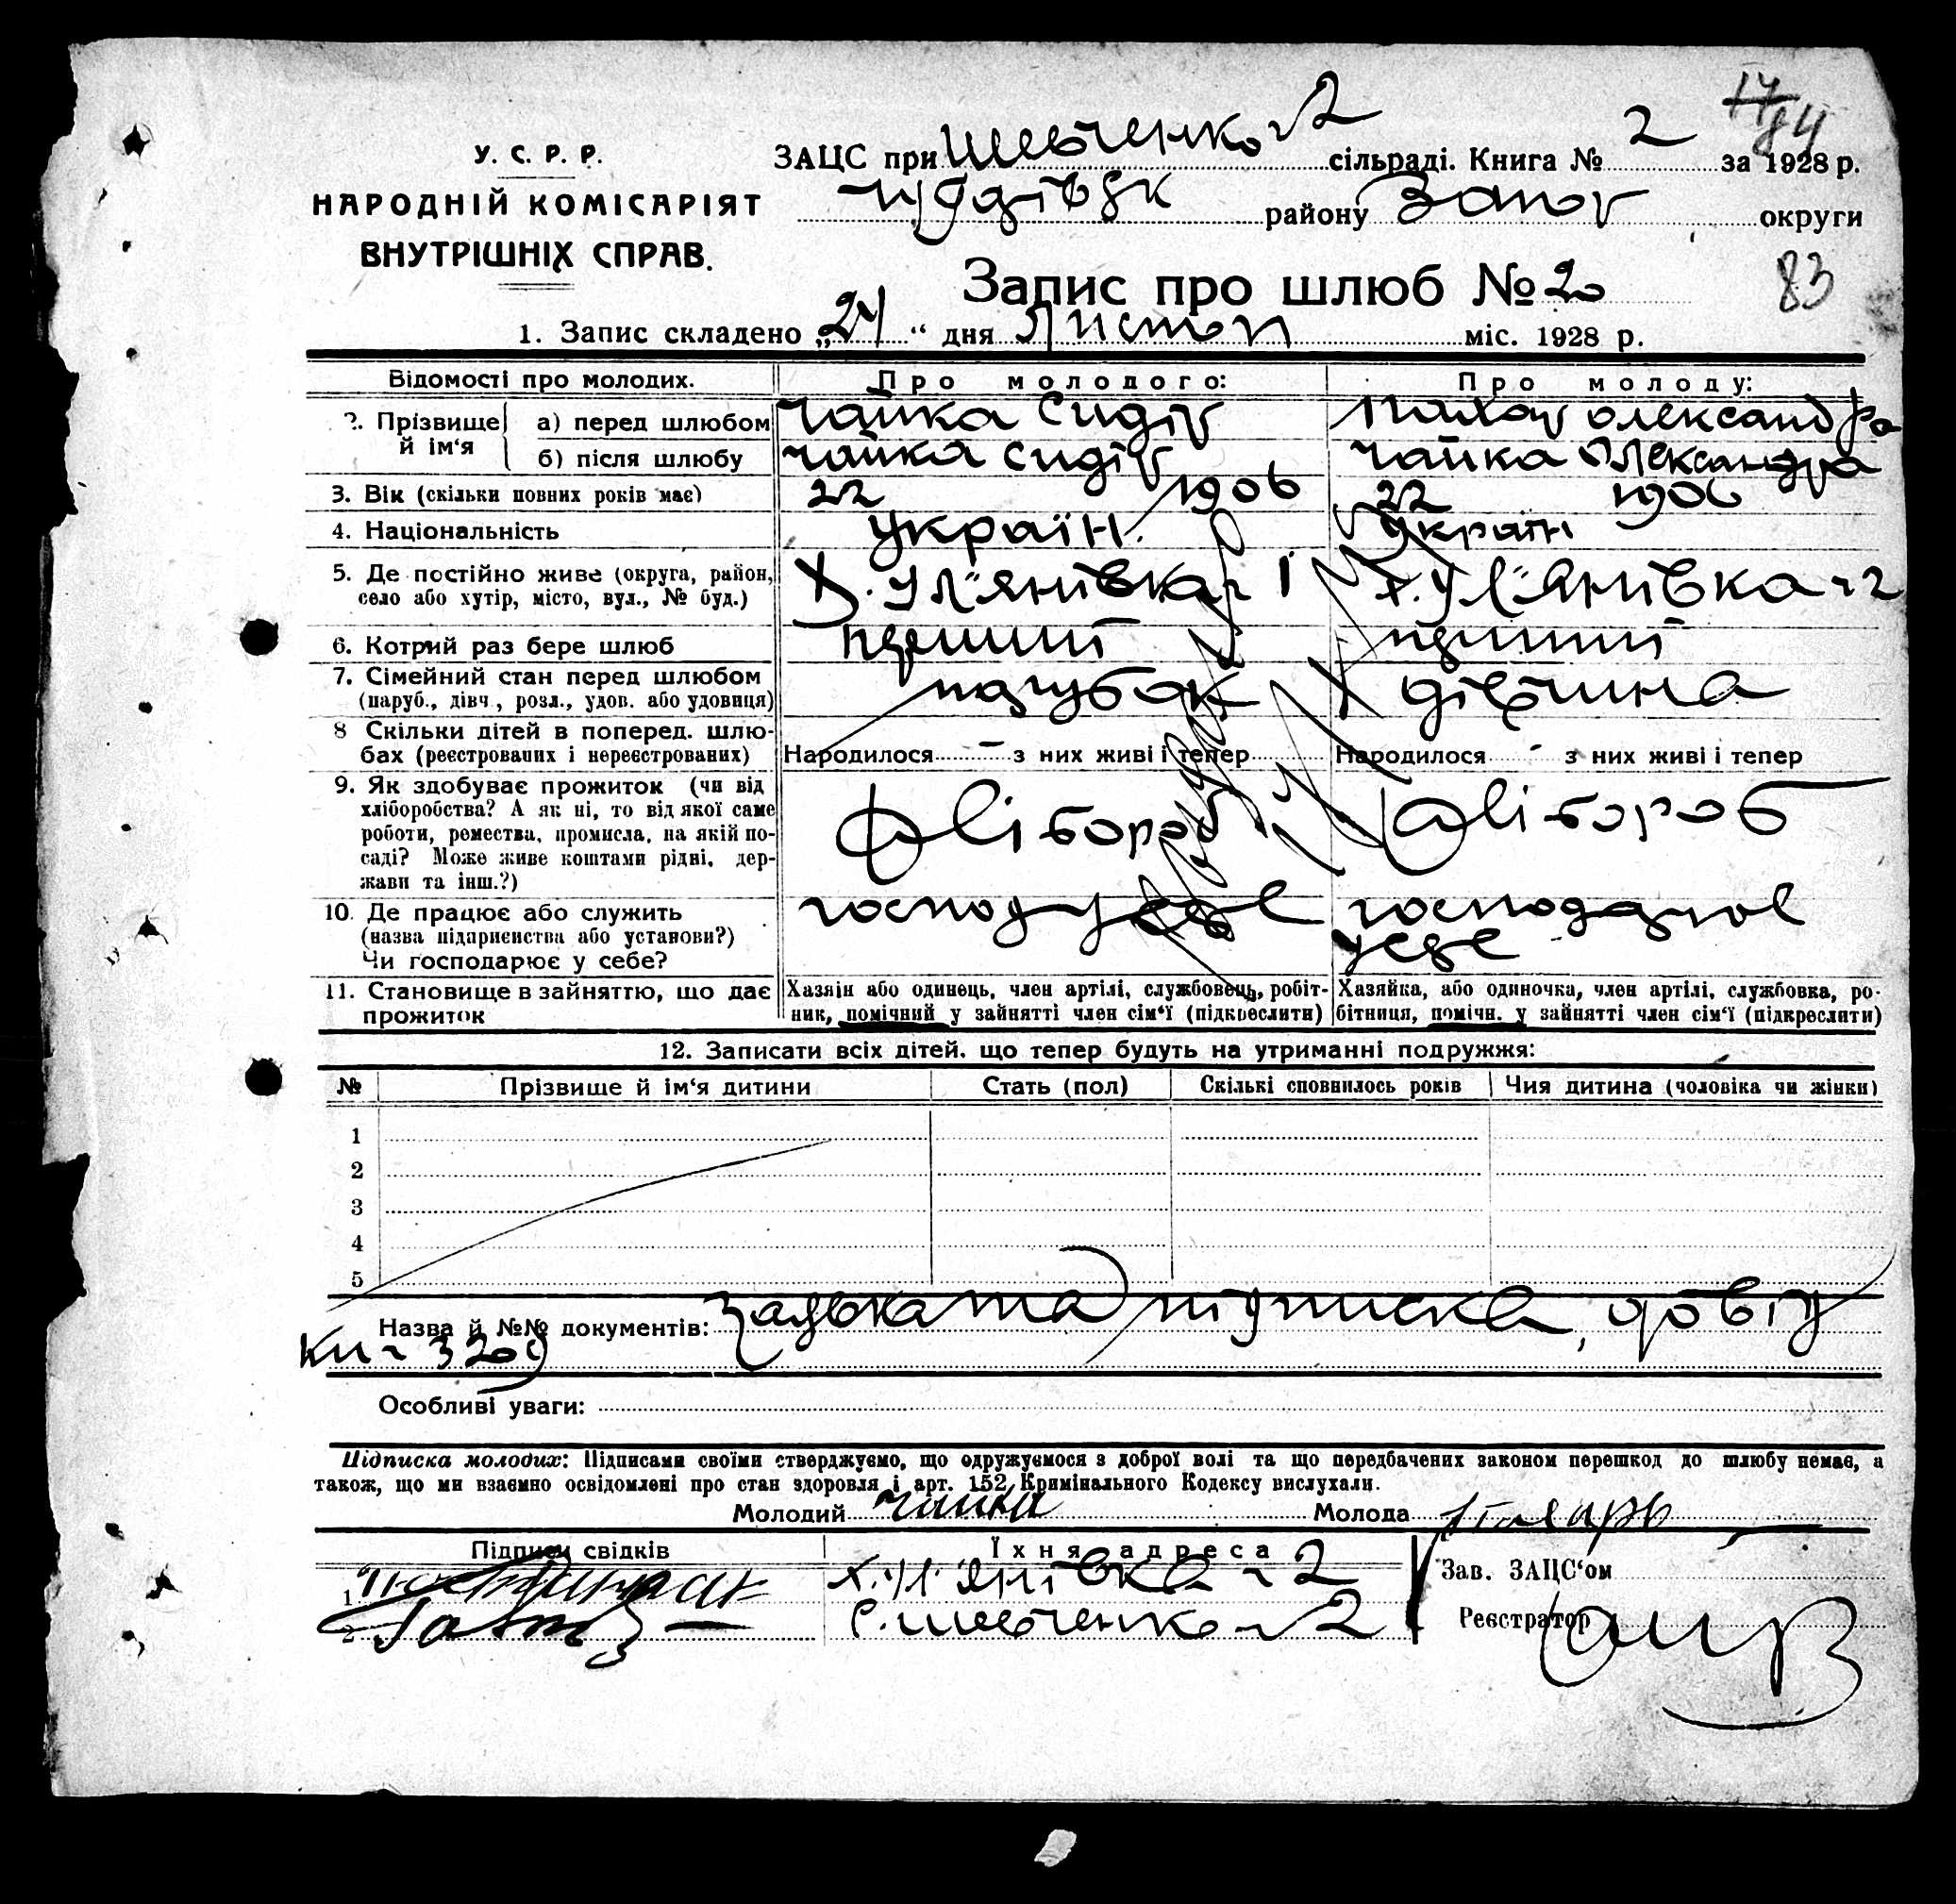 17
84
У. С. Р. Р.
НАРОДНІЙ КОМІСАРІЯТ
ВНУТРІШНІХ СПРАВ.
ЗАЦС при Шевченко 2 сільраді. Книга № 2 за 1928 р.
району Запор округи
Запис про шлюб № 20
83
1. Запис складено „24“ дня Листоп міс. 1928 р.
Відомості про молодих. Про молодого: Про молоду:
2. Прізвище й ім‘я
а) перед шлюбом Чайка Сидір Олександра
б) після шлюбу Чайка Сидір Чайка Олександра
3. Вік (скільки повних років має) 22 1906 22 1906
4. Національність україн. україн
5. Де постійно живе (округа, район, село або хутір, місто, вул., № буд.) Х. Ул'янівка 1 х. Ул'янівка 2
6. Котрий раз бере шлюб перший перший
7. Сімейний стан перед шлюбом парубок дівчина
(паруб., дівч., розл., удов. або удовиця)
8 Скільки дітей в поперед. шлюбах (реєстрованих і нереєстрованих) Народилося – з них живі і тепер Народилося - з них живі і тепер
9. Як здобуває прожиток (чи від хліборобства? А як ні, то від якої саме роботи, ремества, промисла, на якій посаді? Може живе коштами рідні, держави та інш.?) хлібороб хлібороб
10. Де працює або служить (назва підприєнства або установи?) Чи господарює у себе? господарює усебе
11. Становище в зайняттю, що дає прожиток
Хазяїн або одинець, член артілі, службовець, робітник, помічний у зайнятті член сім‘ї (підкреслити)
Хазяйка, або одиночка, член артілі, службовка, робітниця, помічн. у зайнятті член сім‘ї (підкреслити)
12. Записати всіх дітей, що тепер будуть на утриманні подружжя:
№ Прізвище й ім‘я дитини Стать (пол) Скількі сповнилось років Чия дитина (чоловіка чи жінки)
1
2
3
4
5
Назва й №№ документів: заявка та підписка, довід
кн 3209
Особливі уваги:
Підписка молодих: Підписами своїми стверджуємо, що одружуємося з доброї волі та що передбачених законом перешкод до шлюбу немає, а
також, що ми взаємно освідомлені про стан здоровля і арт. 152 Кримінального Кодексу вислухали.
Молодий Чайка Молода
Підписи свідків Їхня адреса
1 х. Ул'янівка 2
2 с. Шевченко 2
Зав. ЗАЦС‘ом
Реєстратор